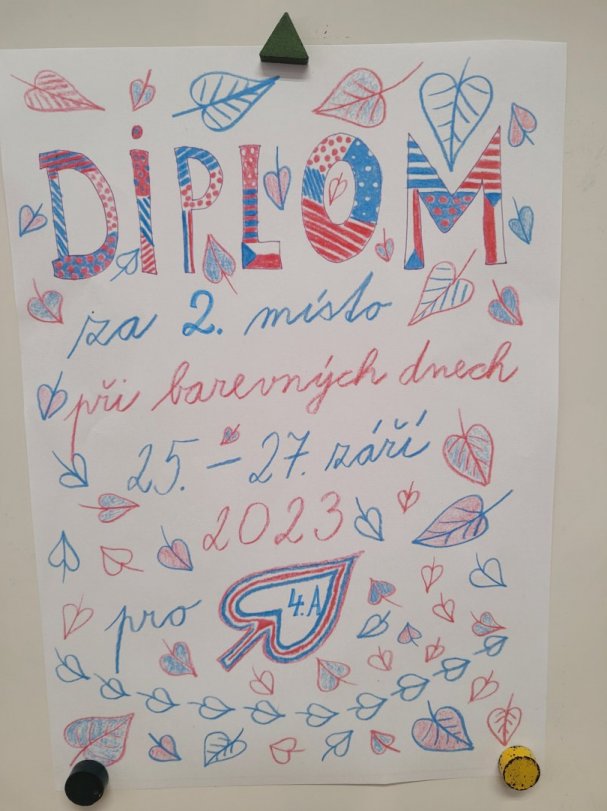 DIPLOM
za 2. místo
při barevných dnech
25. - 27. září
2023
pro 4.A